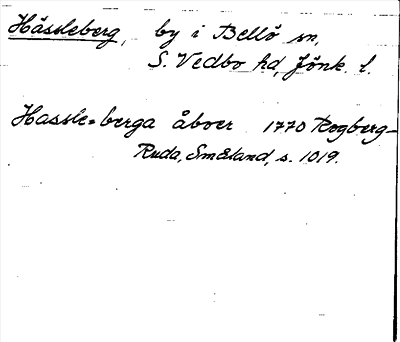 Hässleberg, by i Bellö sn,
S. Vedbo hd, Jönk. l.
Hassle=berga åboer 1770 Rogberg-
Ruda, Småland, s. 1019.